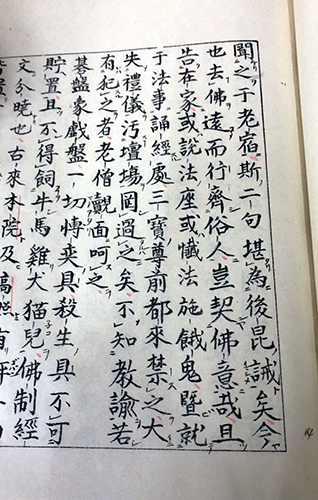 聞之于老宿斯二句堪為後昆誡矣今
也去佛遠而行齊俗人豈契佛意哉且
告在家或說法座或懺法施餓鬼暨就
于法事誦經處三寶尊前都來禁之大
失禮儀汚壇場罔過之矣不知教諭若
有犯之者老僧覿面呵之
碁盤象戲盤一切博奕具殺生具不可
貯置且不得飼牛馬雞犬猫兒佛制經
文分曉也古來本院及